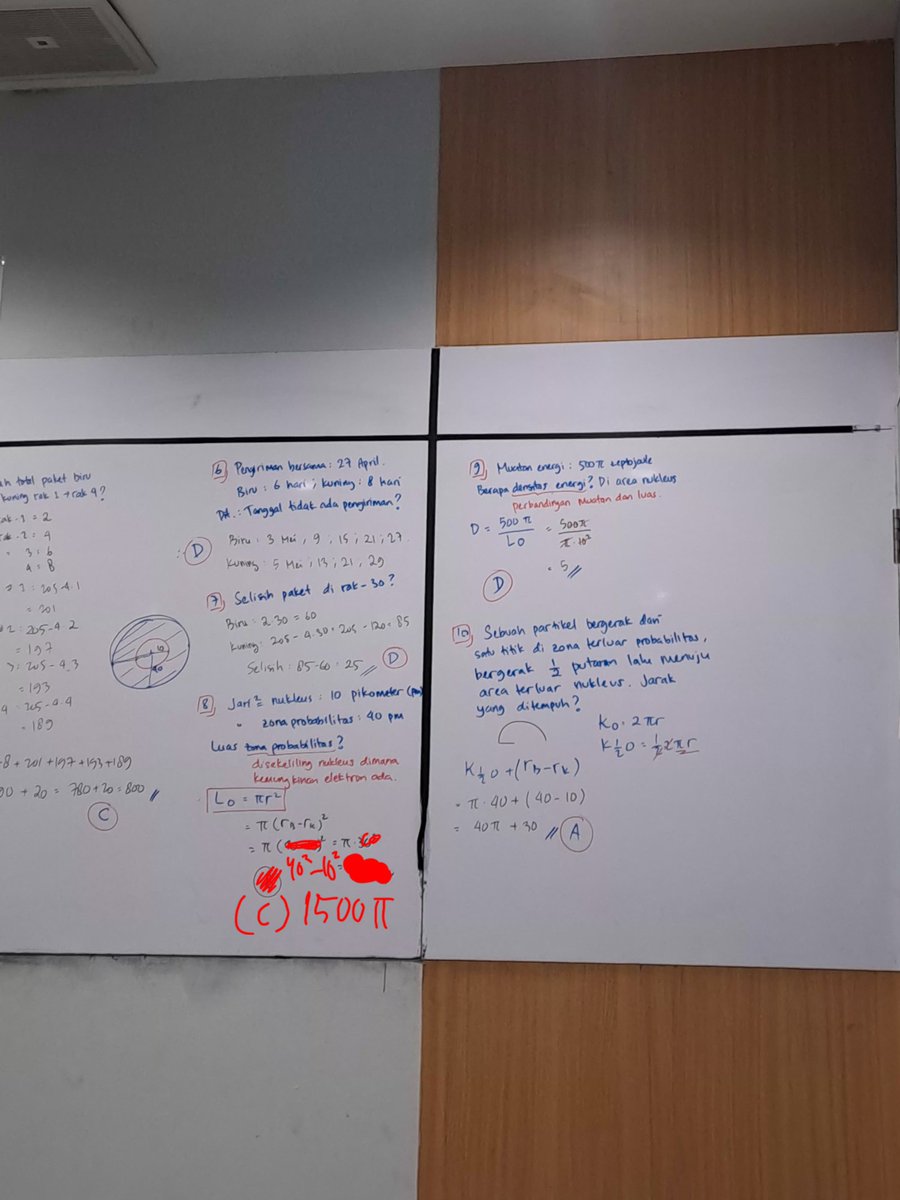 ah total paket biru
kuning rak 1 → rak 4?
rak-1 = 2
rak-2 = 4
3 = 6
4 = 8
1 : 205-4.1
= 201
2 : 205-4.2
= 197
3 : 205-4.3
= 193
4 : 205-4.4
= 189
+8 + 201 + 197 + 193 + 189
+ 20 = 780 + 20 = 800
C
10
40
6 Pengiriman bersama : 27 April.
Biru : 6 hari ; kuning : 8 hari
Dit. : Tanggal tidak ada pengiriman?
D
Biru : 3 Mei, 9 ; 15 ; 21 ; 27.
Kuning : 5 Mei ; 13 ; 21 , 29
7 Selisih paket di rak-30?
Biru : 2.30 = 60
kuning : 205 - 4.30 = 205 - 120 = 85
Selisih : 85-60 = 25 // D
8 Jari² nukleus : 10 pikometer (pm)
" zona probabilitas : 40 pm
Luas zona probabilitas?
disekeliling nukleus dimana
kemungkinan elektron ada.
LO = πr²
= π (rB - rK)²
= π ( )² = π.
40² - 10² =
(C) 1500π
9 Muatan energi : 500π zeptojoule
Berapa densitas energi? Di area nukleus
perbandingan muatan dan luas.
D = 500π / LO = 500π / π.10²
= 5 //
D
10 Sebuah partikel bergerak dari
satu titik di zona terluar probabilitas,
bergerak 1/2 putaran lalu menuju
area terluar nukleus. Jarak
yang ditempuh?
KO = 2πr
K 1/2 O = 1/2 2πr
K 1/2 O + (rB - rK)
= π . 40 + (40 - 10)
= 40π + 30 // A